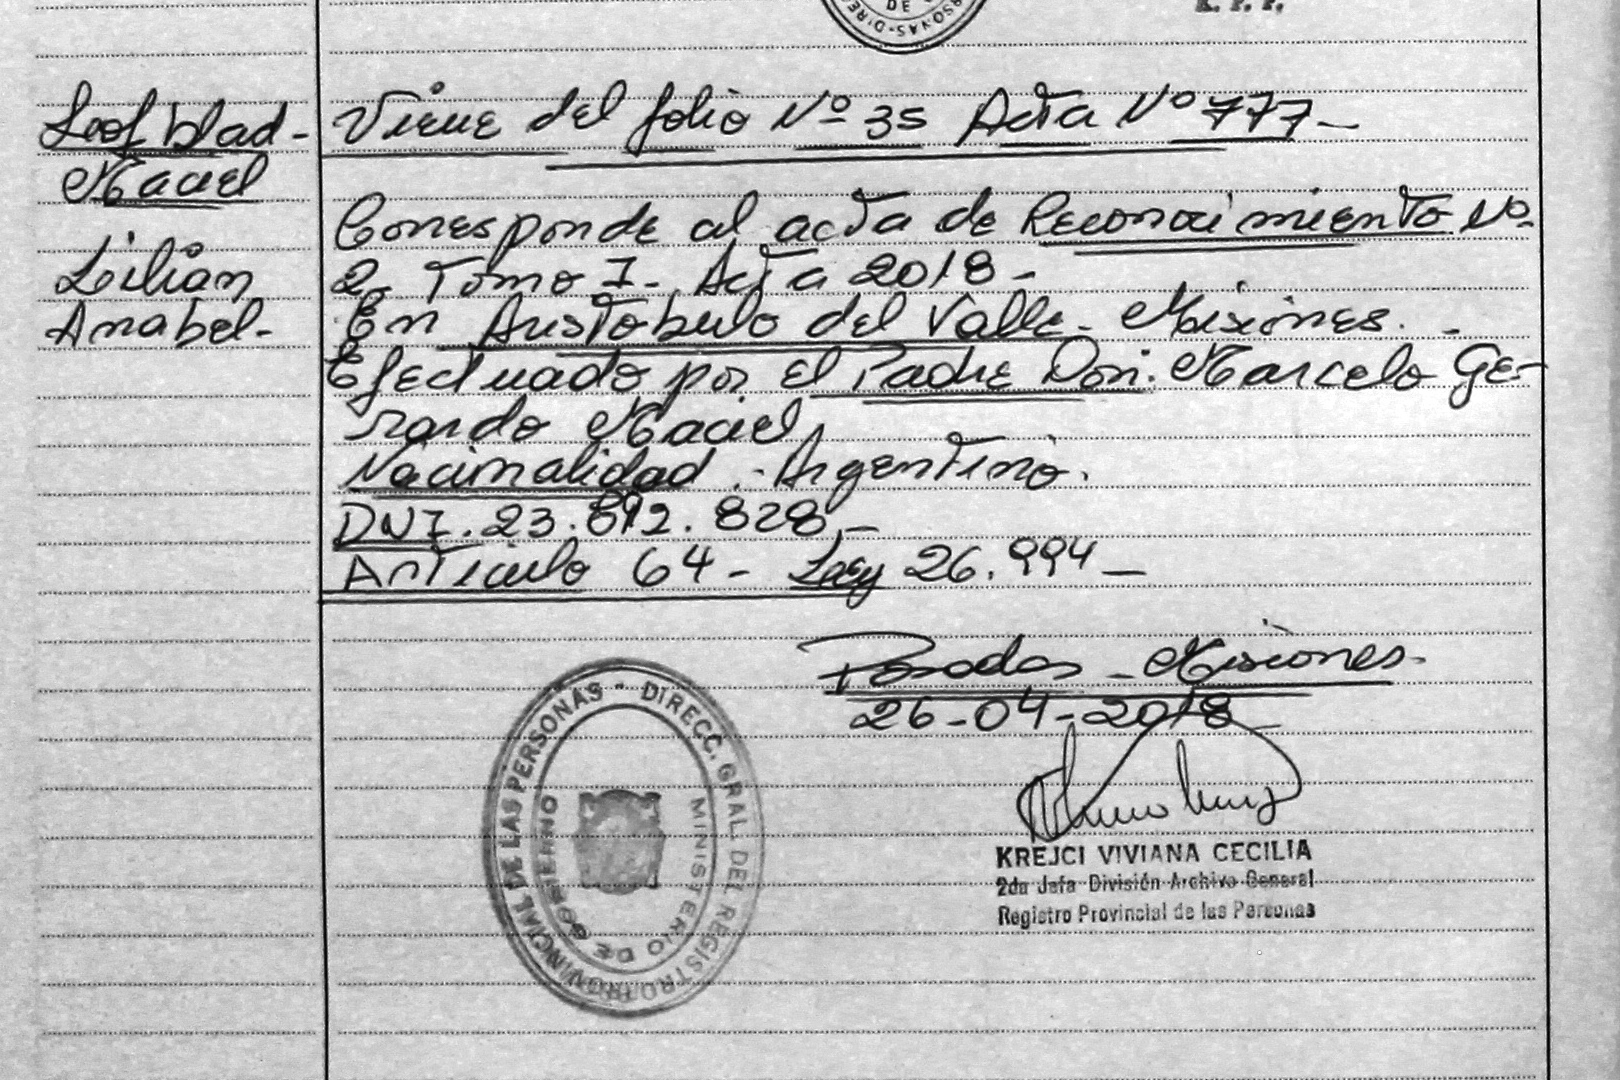 DE
PERSONAS-DIREC
Leof blad-
Maciel
Lilian
Anabel-
Viene del folio Nº 35 Acta Nº 777-
Corresponde al acta de Reconocimiento Nº
2- Tomo I- Acta 2018-
En Aristobulo del Valle- Misiones. -
Efectuado por el Padre Don: Marcelo Ge-
rardo Maciel
Nacionalidad - Argentino.
DNI. 23.892.828-
Articulo 64- Ley 26.994-
Posadas - Misiones-
26-04-2018
REGISTRO PROVINCIAL DE LAS PERSONAS - DIRECC. GRAL. DEL
MINISTERIO DE GOBIERNO
KREJCI VIVIANA CECILIA
2da Jefa División Archivo General
Registro Provincial de las Personas